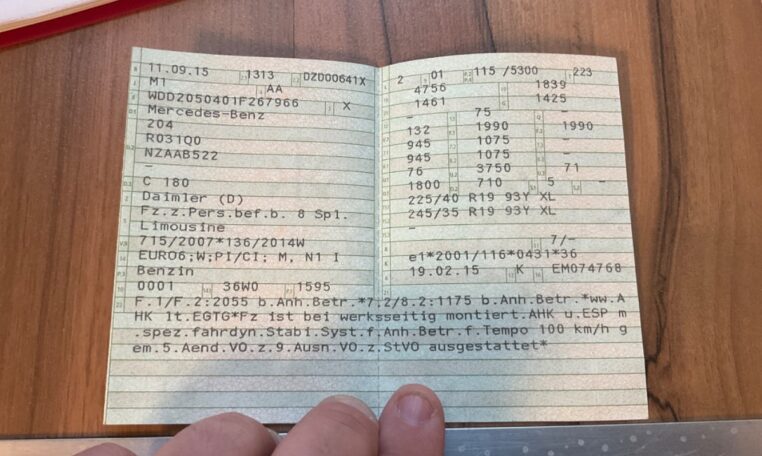 11.09.15 1313 DZD00641X
M1 AA
WDD2050401F267966 X
Mercedes-Benz
204
R031Q0
NZAAB522
-
C 180
Daimler (D)
Fz.z.Pers.bef.b. 8 Spl.
Limousine
715/2007*136/2014W
EURO6;W;PI/CI; M, N1 I
Benzin
0001 36W0 1595
2 01 115 /5300 223
4756 1839
1461 1425
- 75 -
132 1990 1990
945 1075 -
945 1075 -
76 3750 71
1800 710 5 -
225/40 R19 93Y XL
245/35 R19 93Y XL
-
7/-
e1*2001/116*0431*36
19.02.15 K EM074768
F.1/F.2:2055 b.Anh.Betr.*7.2/8.2:1175 b.Anh.Betr.*ww.A
HK lt.EGTG*Fz ist bei werksseitig montiert.AHK u.ESP m
.spez.fahrdyn.Stabi.Syst.f.Anh.Betr.f.Tempo 100 km/h g
em.5.Aend.VO.z.9.Ausn.VO.z.StVO ausgestattet*